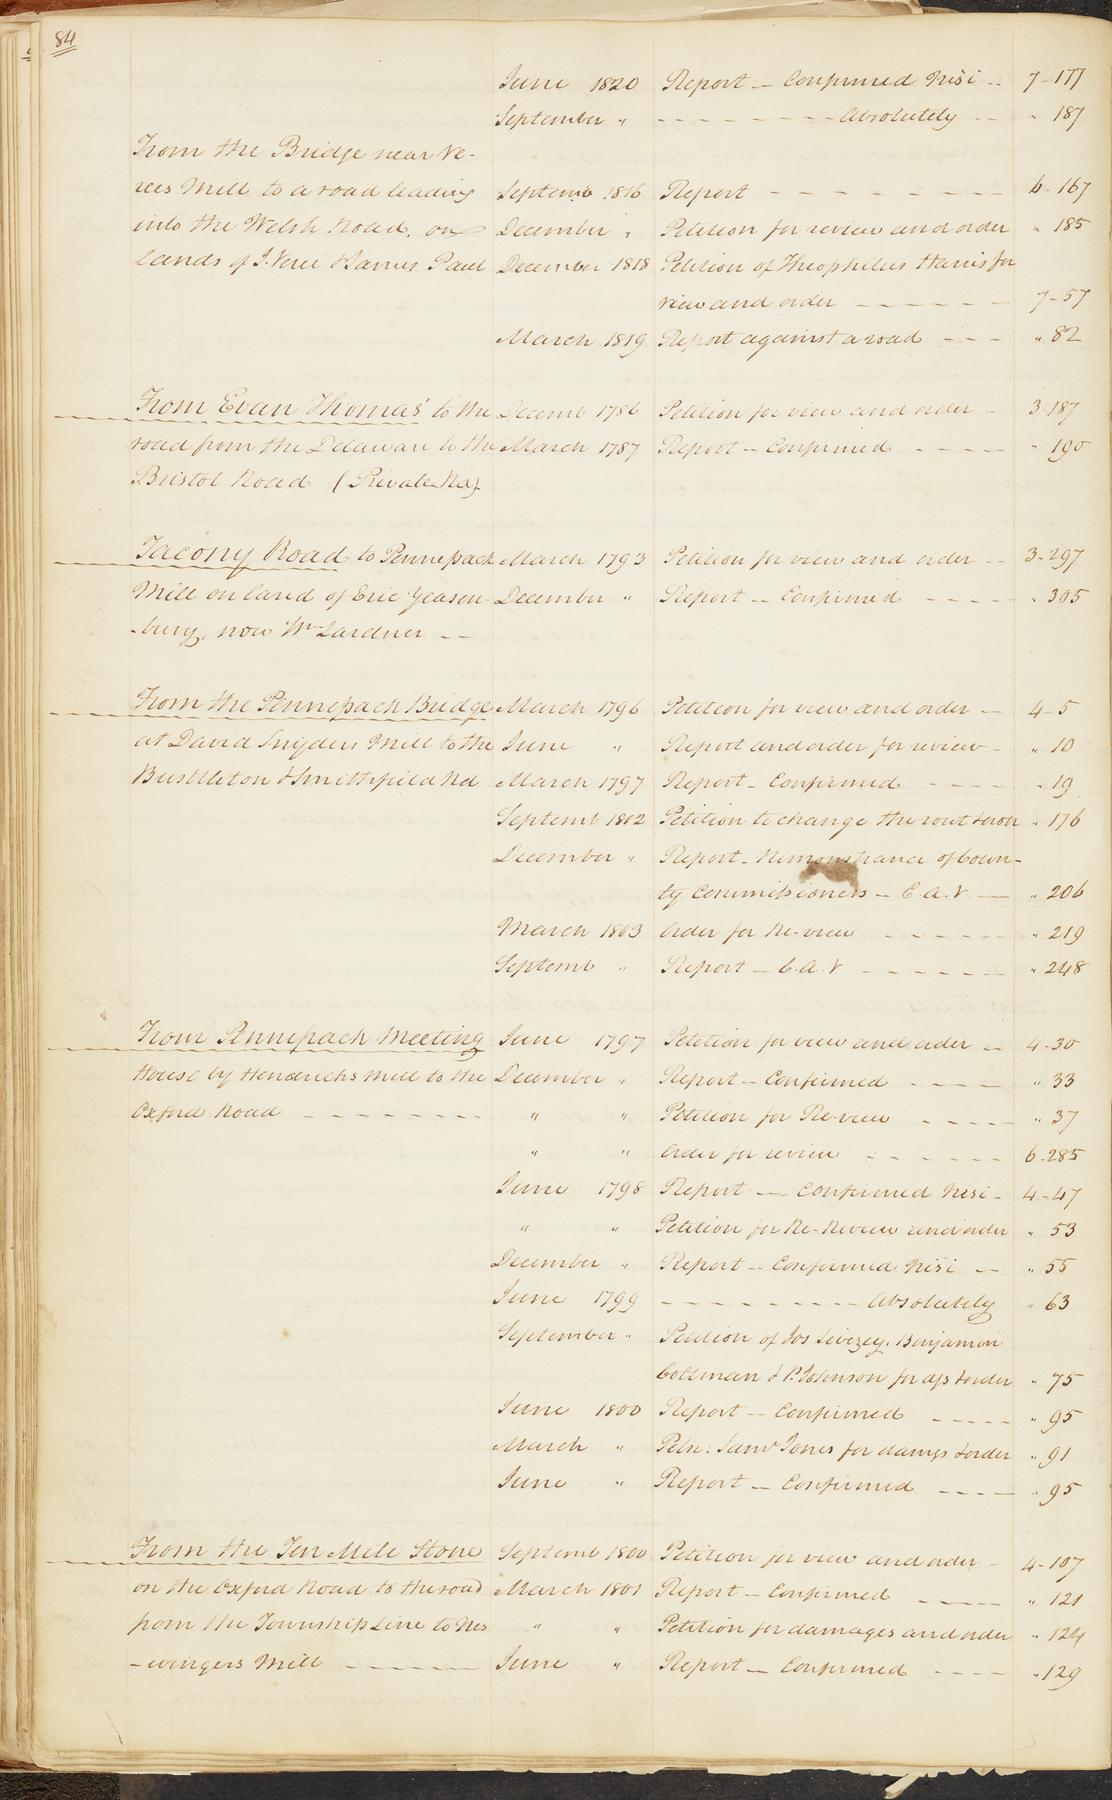 84
June 1820 Report — Confirmed Nisi -- 7-177
September " - - - - - - - - Absolutely -- " 187
From the Bridge near Ve-
rees Mill to a road leading Septemb 1816 Report - - - - - - - - - 6-167
into the Welsh Road, on December " Petition for review and order " 185
lands of J. Veree & James Paul December 1818 Petition of Theophilus Harris for
view and order - - - - - - 7-57
March 1819 Report against a road - - - " 82
From Evan Thomas' to the Decemb 1786 Petition for view and order - 3-187
road from the Delaware to the March 1787 Report — Confirmed - - - - " 190
Bristol Road (Private Rd)
Tacony Road to Pennepack March 1793 Petition for view and order -- 3-297
Mill on land of Eric Gleason- December " Report — Confirmed - - - - " 305
-burg, now Wm Lardner --
From the Pennepack Bridge March 1796 Petition for view and order — 4-5
at David Snyders Mill to the June " Report and order for review - " 10
Bustleton & Smithfield Rd March 1797 Report - Confirmed - - - - " 19
Septemb 1802 Petition to change the rout & order " 176
December " Report - Remonstrance of Coun-
ty Commissioners — C.A.V — " 206
March 1803 Order for Re-view - - - - - " 219
Septemb " Report — C.A.V - - - - - - " 248
From Pennepack Meeting June 1797 Petition for view and order -- 4-30
House by Hendricks Mill to the December " Report — Confirmed - - - - " 33
Oxford Road - - - - - - - - " " Petition for Re-view - - - - - " 37
" " Order for review - - - - - - 6-285
June 1798 Report — Confirmed Nisi - 4-47
" " Petition for Re-Review and order " 53
December " Report — Confirmed Nisi -- " 55
June 1799 - - - - - - - - - Absolutely " 63
September " Petition of Jos Livezey, Benjamin
Cottman & P. Johnson for dgs & order " 75
June 1800 Report — Confirmed - - - - - " 95
March " Petn: Saml Jones for damgs & order " 91
June " Report — Confirmed - - - - " 95
From the Ten Mile Stone Septemb 1800 Petition for view and order - 4-107
on the Oxford Road to the road March 1801 Report — Confirmed - - - - - " 121
from the Township Line to Nes " " Petition for damages and order " 124
-wingers Mill - - - - - - June " Report — Confirmed - - - - " 129